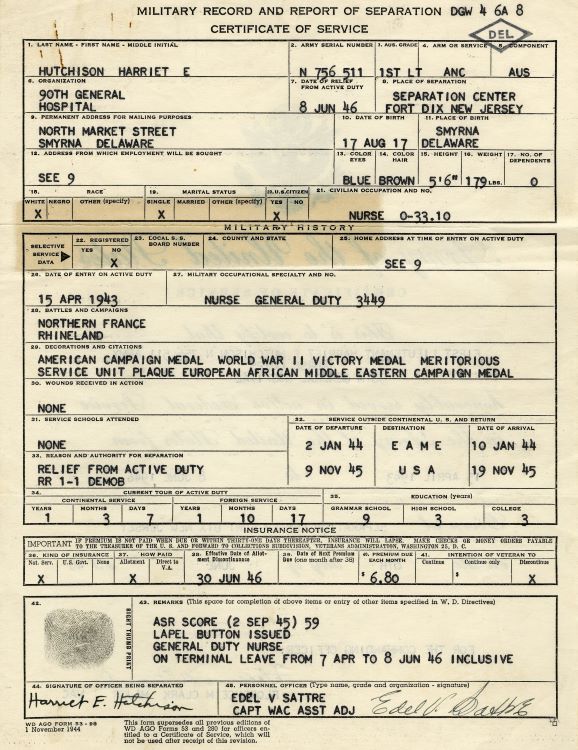 MILITARY RECORD AND REPORT OF SEPARATION DGW 4 6A 8
CERTIFICATE OF SERVICE
DEL
1. LAST NAME - FIRST NAME - MIDDLE INITIAL 2. ARMY SERIAL NUMBER 3. AUS. GRADE 4. ARM OR SERVICE 5. COMPONENT
HUTCHISON HARRIET E N 756 511 1ST LT ANC AUS
6. ORGANIZATION 7. DATE OF RELIEF FROM ACTIVE DUTY 8. PLACE OF SEPARATION
90TH GENERAL SEPARATION CENTER
HOSPITAL 8 JUN 46 FORT DIX NEW JERSEY
9. PERMANENT ADDRESS FOR MAILING PURPOSES 10. DATE OF BIRTH 11. PLACE OF BIRTH
NORTH MARKET STREET SMYRNA
SMYRNA DELAWARE 17 AUG 17 DELAWARE
12. ADDRESS FROM WHICH EMPLOYMENT WILL BE SOUGHT 13. COLOR EYES 14. COLOR HAIR 15. HEIGHT 16. WEIGHT 17. NO. OF DEPENDENTS
SEE 9 BLUE BROWN 5'6" 179 LBS. 0
18. RACE 19. MARITAL STATUS 20. U.S. CITIZEN 21. CIVILIAN OCCUPATION AND NO.
WHITE NEGRO OTHER (specify) SINGLE MARRIED OTHER (specify) YES NO
X X X NURSE 0-33.10
MILITARY HISTORY
SELECTIVE SERVICE DATA 22. REGISTERED 23. LOCAL S. S. BOARD NUMBER 24. COUNTY AND STATE 25. HOME ADDRESS AT TIME OF ENTRY ON ACTIVE DUTY
YES NO
X SEE 9
26. DATE OF ENTRY ON ACTIVE DUTY 27. MILITARY OCCUPATIONAL SPECIALTY AND NO.
15 APR 1943 NURSE GENERAL DUTY 3449
28. BATTLES AND CAMPAIGNS
NORTHERN FRANCE
RHINELAND
29. DECORATIONS AND CITATIONS
AMERICAN CAMPAIGN MEDAL WORLD WAR II VICTORY MEDAL MERITORIOUS
SERVICE UNIT PLAQUE EUROPEAN AFRICAN MIDDLE EASTERN CAMPAIGN MEDAL
30. WOUNDS RECEIVED IN ACTION
NONE
31. SERVICE SCHOOLS ATTENDED 32. SERVICE OUTSIDE CONTINENTAL U. S. AND RETURN
DATE OF DEPARTURE DESTINATION DATE OF ARRIVAL
NONE 2 JAN 44 E A M E 10 JAN 44
33. REASON AND AUTHORITY FOR SEPARATION
RELIEF FROM ACTIVE DUTY 9 NOV 45 U S A 19 NOV 45
RR 1-1 DEMOB
34. CURRENT TOUR OF ACTIVE DUTY 35. EDUCATION (years)
CONTINENTAL SERVICE FOREIGN SERVICE
YEARS MONTHS DAYS YEARS MONTHS DAYS GRAMMAR SCHOOL HIGH SCHOOL COLLEGE
1 3 7 1 10 17 9 3 3
INSURANCE NOTICE
IMPORTANT IF PREMIUM IS NOT PAID WHEN DUE OR WITHIN THIRTY-ONE DAYS THEREAFTER, INSURANCE WILL LAPSE. MAKE CHECKS OR MONEY ORDERS PAYABLE
TO THE TREASURER OF THE U. S. AND FORWARD TO COLLECTIONS SUBDIVISION, VETERANS ADMINISTRATION, WASHINGTON 25, D. C.
36. KIND OF INSURANCE 37. HOW PAID 38. Effective Date of Allotment Discontinuance 39. Date of Next Premium Due (one month after 38) 40. PREMIUM DUE EACH MONTH 41. INTENTION OF VETERAN TO
Nat. Serv. U.S. Govt. None Allotment Direct to V.A. Continue Continue only Discontinue
X X 30 JUN 46 $ 6.80 $ X
42. 43. REMARKS (This space for completion of above items or entry of other items specified in W. D. Directives)
RIGHT THUMB PRINT
ASR SCORE (2 SEP 45) 59
LAPEL BUTTON ISSUED
GENERAL DUTY NURSE
ON TERMINAL LEAVE FROM 7 APR TO 8 JUN 46 INCLUSIVE
44. SIGNATURE OF OFFICER BEING SEPARATED 45. PERSONNEL OFFICER (Type name, grade and organization - signature)
Harriet E. Hutchison EDEL V SATTRE Edel V. Sattre
CAPT WAC ASST ADJ
WD AGO FORM 53-98
1 November 1944
This form supersedes all previous editions of
WD AGO Forms 53 and 280 for officers entitled to a Certificate of Service, which will
not be used after receipt of this revision.